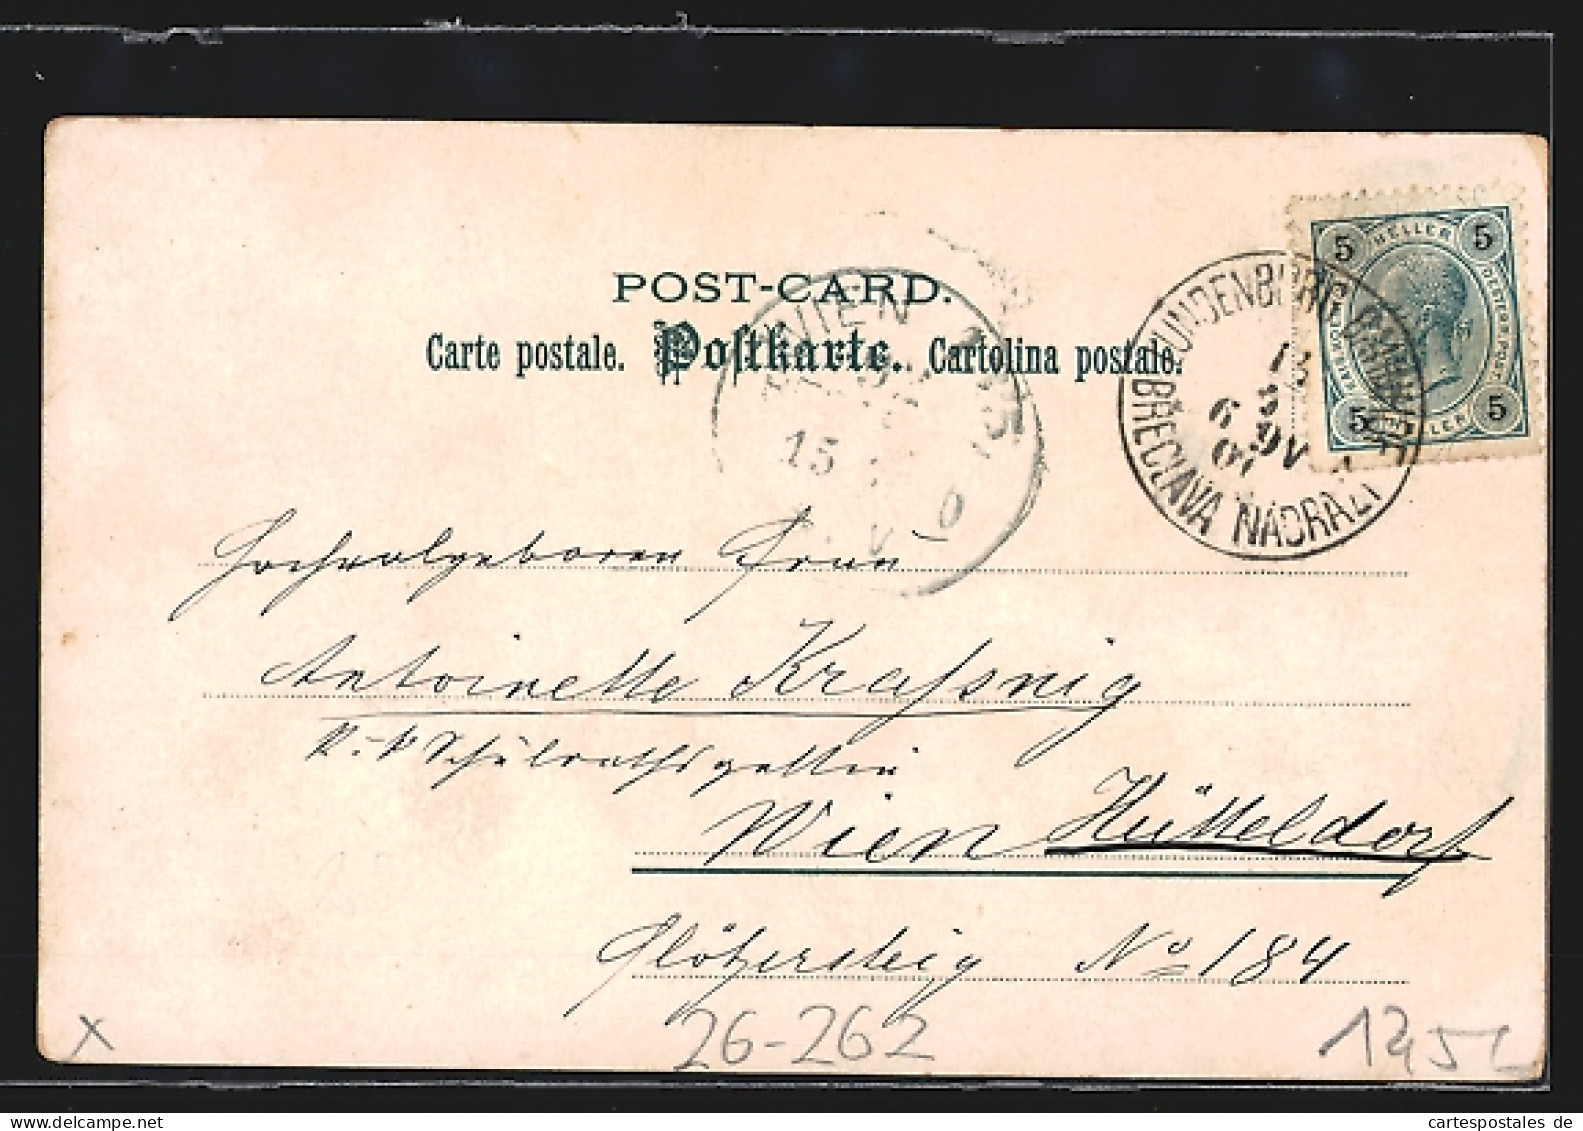 POST-CARD.
Carte postale. Postkarte. Cartolina postale.
5 HELLER 5
5 HELLER 5
LUNDENBURG BAHNHOF
13 5
6 9V
01
BŘECLAVA NÁDRAŽÍ
WIEN
15
Hochwolgeboren Frau
Antoinette Kraſsnig
k. k. Schulrathsgattin
Wien Hütteldorf
No 184
26-262
x
cartespostales de